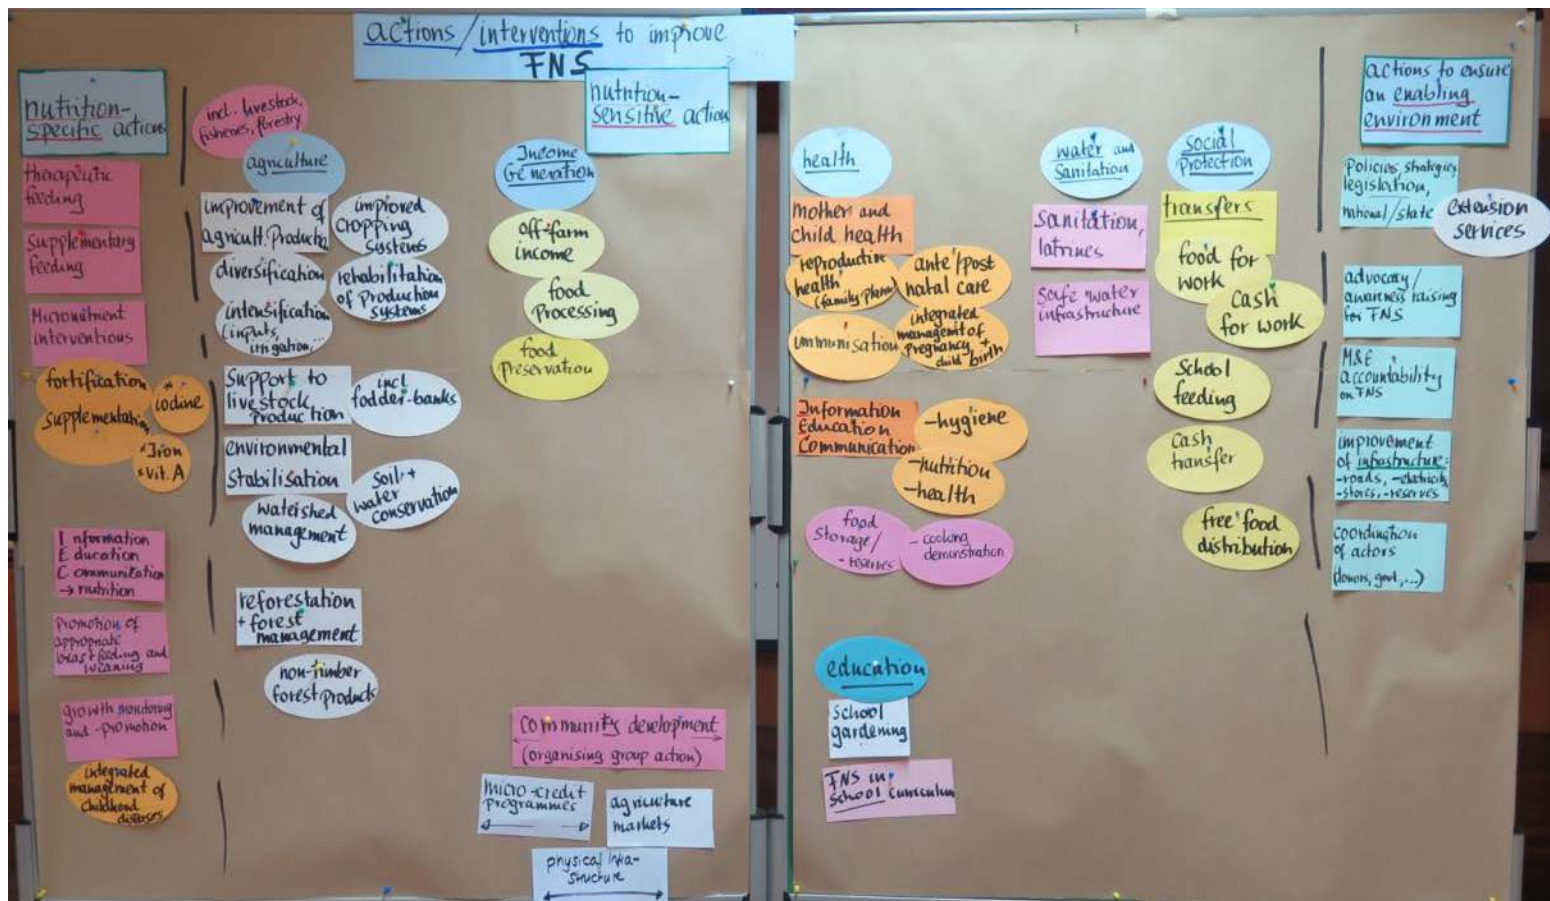 actions/interventions to improve
FNS
nutrition-
specific actions
therapeutic
feeding
Supplementary
feeding
Micronutrient
interventions
fortification
supplementation
* iodine
* Iron
* vit. A
Information
Education
Communication
→ nutrition
Promotion of
appropriate
breastfeeding and
weaning
growth monitoring
and -promotion
integrated
management of
childhood
diseases
nutrition-
sensitive action
incl. livestock,
fisheries, forestry
agriculture
improvement of
agricult. Productio
improved
cropping
systems
diversification
rehabilitation
of Production
systems
intensification
(inputs,
irrigation,...
Support to
livestock
production
incl
fodder-banks
environmental
stabilisation
soil +
water
conservation
watershed
management
reforestation
+ forest
management
non-timber
forest products
Income
Generation
off-farm
income
food
Processing
food
Preservation
community development
(organising group action)
micro-credit
programmes
agriculture
markets
physical infra-
structure
health
mother and
child health
reproductive
health
(family plann
ante/post
natal care
immunisation
integrated
managemt of
pregnancy +
child birth
Information
Education
Communication
-hygiene
-nutrition
-health
food
Storage/
-reserves
- cooking
demonstration
education
school
gardening
FNS in
school curriculum
water and
Sanitation
sanitation,
latrines
Safe water
infrastructure
social
Protection
transfers
food for
work
cash
for work
School
feeding
cash
transfer
free food
distribution
actions to ensure
an enabling
environment
Policies, strategies
legislation,
national/state
extension
services
advocacy/
awareness raising
for FNS
M&E
accountability
on FNS
improvement
of infrastructure:
-roads, -electricity
-stores, -reserves
coordination
of actors
(donors, govt,...)